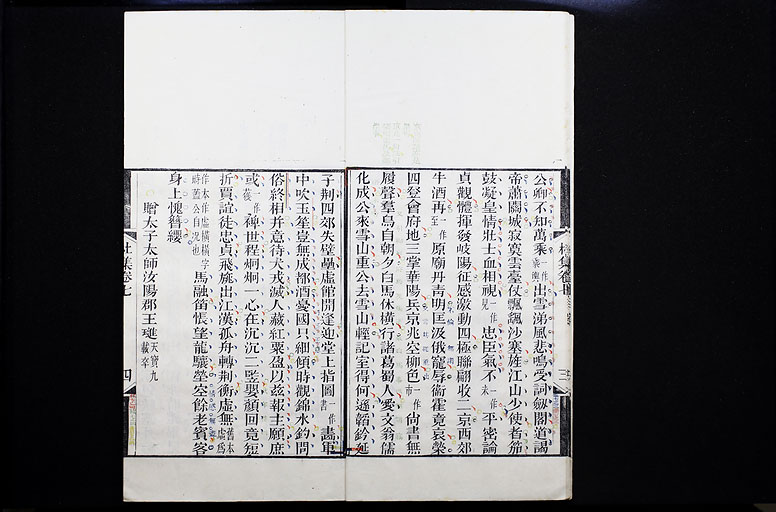 公卿不知萬乘出雪涕風悲鳴受詞劍閣道謁
帝蕭關城寂寞雲臺仗飄颻沙塞旌江山少使者笳
鼓凝皇情壯士血相視一作見忠臣氣不一作未平密論
貞觀體揮發岐陽征感激動四極聯翩收二京西郊
牛酒再一作至原廟丹青明匡汲俄寵辱衛霍竟哀榮
四登會府地三掌華陽兵京兆空柳色一作市尚書無
履聲羣烏自朝夕白馬休橫行諸葛蜀人愛文翁儒
化成公來雪山重公去雪山輕記室得何遜韜鈐延
子荆四郊失壁壘虛館開逢迎堂上指圖一作書畫軍
中吹玉笙豈無成都酒憂國只細傾時觀錦水釣問
俗終相并意待犬戎滅人藏紅粟盈以兹報主願庶
或一作獲裨世程炯炯一心在沉沉二豎嬰顔回竟短
折賈誼徒忠貞飛旐出江漢孤舟轉荆衡虛無
馬融笛悵望龍驤塋空餘老賓客
身上愧簪纓
贈太子太師汝陽郡王璡天寶九載卒
杜集卷七
四
三